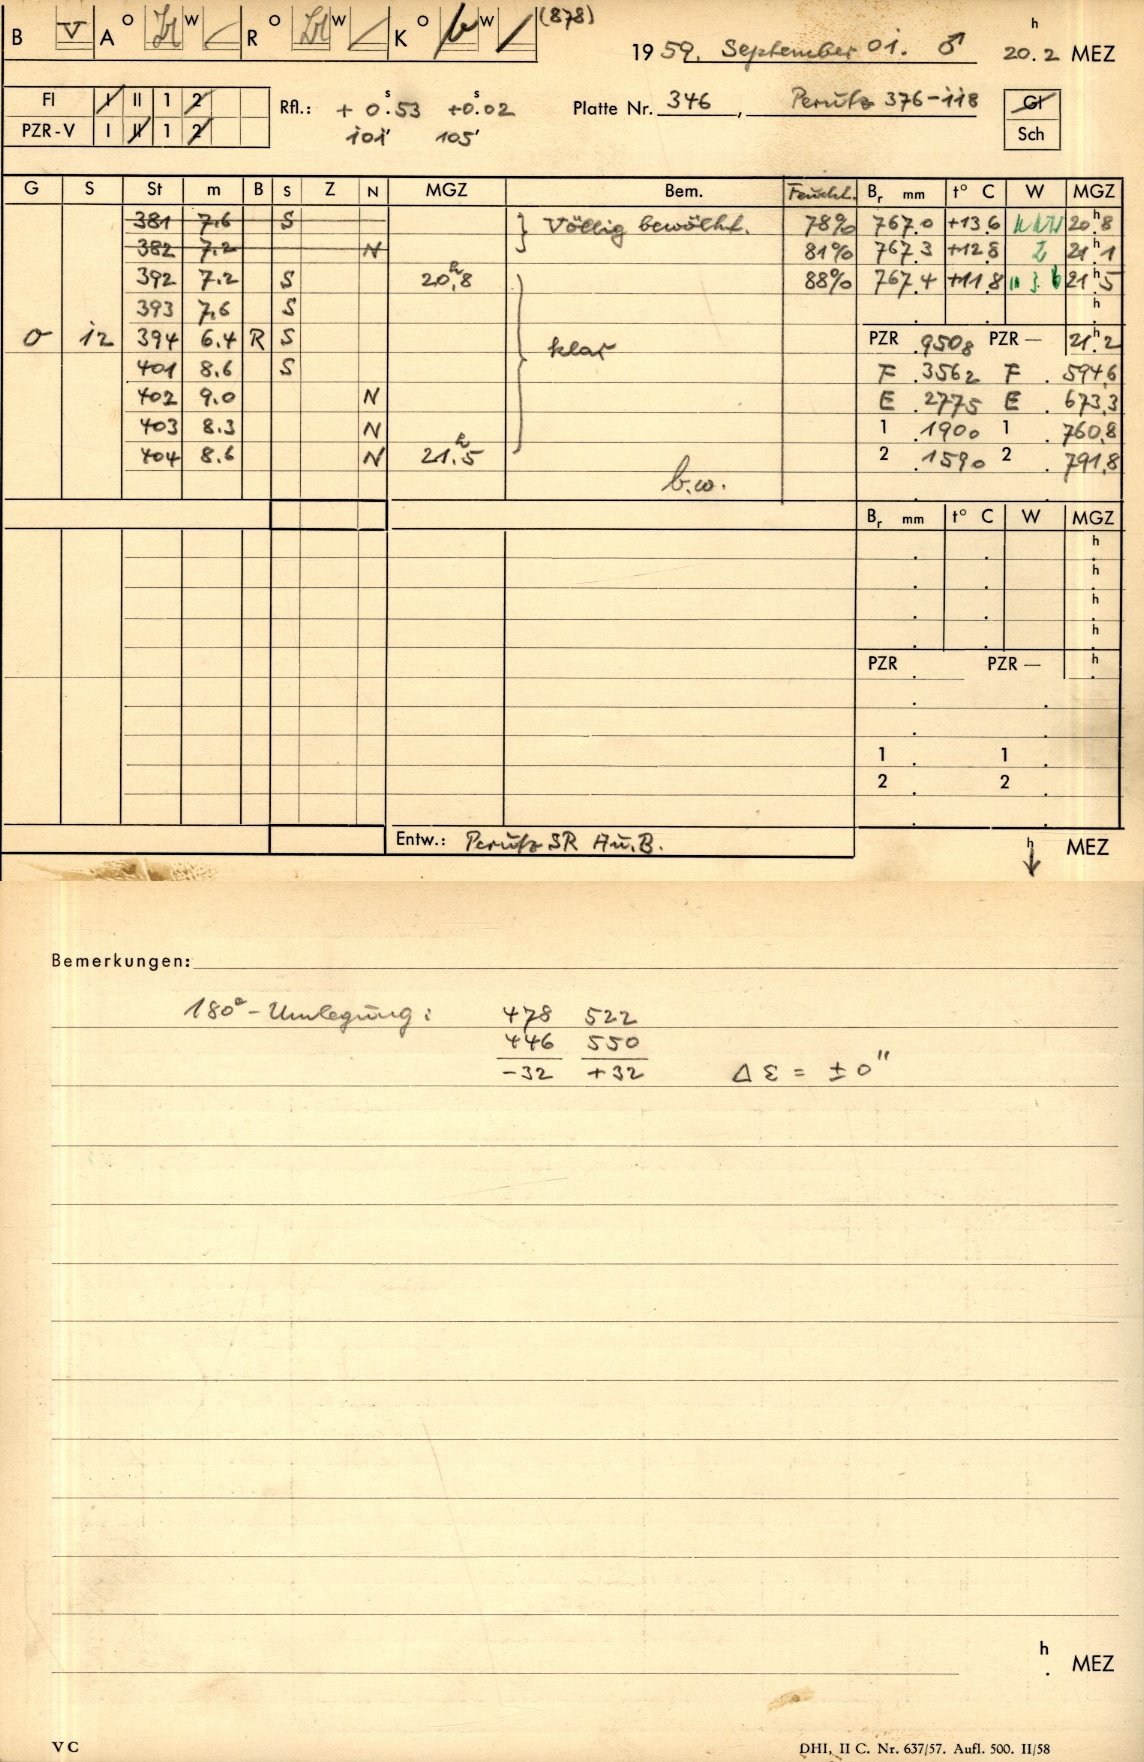 B V A O W R O W K O W (878)
1959. September 01. ♂ 20.2 h MEZ
Fl I II 1 2
PZR-V I II 1 2
Rfl.: + 0.53 s +0.02 s
101' 105'
Platte Nr. 346, Perutz 376-118
Gl
Sch
G S St m B S Z N MGZ Bem. Feucht. Br mm t° C W MGZ
381 7.6 S Völlig bewölkt. 78% 767.0 +13.6 20.8 h
382 7.2 N 81% 767.3 +12.8 21.1 h
392 7.2 S 20.8 h 88% 767.4 +11.8 21.5 h
393 7.6 S h
O 12 394 6.4 R S klar PZR .9508 PZR — 21.2 h
401 8.6 S F .3562 F . 594.6
402 9.0 N E .2775 E . 673.3
403 8.3 N 1 .1900 1 . 760.8
404 8.6 N 21.5 h 2 .1590 2 . 791.8
b.w.
Br mm t° C W MGZ
h
h
h
h
PZR . PZR — h
1 . 1 .
2 . 2 .
Entw.: Perutz SR Au.B.
h MEZ
Bemerkungen:
180° - Umlegung: 478 522
446 550
-32 +32 Δ ε = ± 0"
h
. MEZ
V C DHI, II C. Nr. 637/57. Aufl. 500. II/58